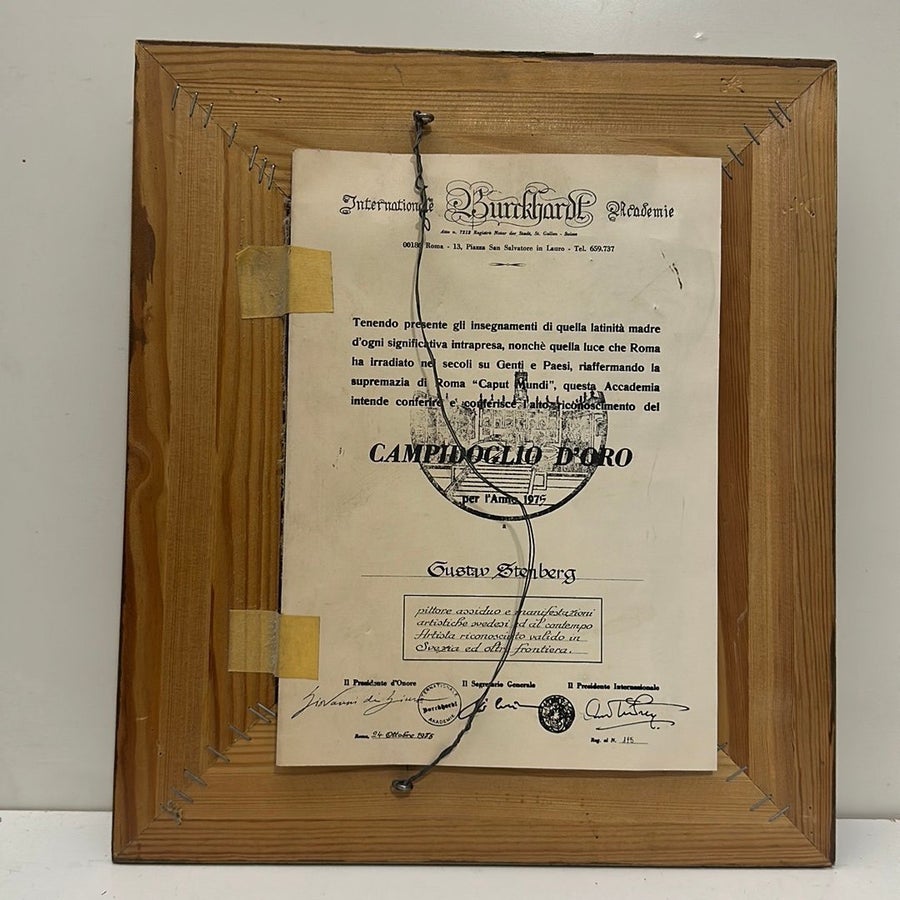 Internationale Burckhardt Academie
Atto n. 7312 Registro Notar der Stadt, St. Gallen - Suisse
00186 Roma - 13, Piazza San Salvatore in Lauro - Tel. 659.737
Tenendo presente gli insegnamenti di quella latinità madre
d'ogni significativa intrapresa, nonchè quella luce che Roma
ha irradiato nei secoli su Genti e Paesi, riaffermando la
supremazia di Roma "Caput Mundi", questa Accademia
intende conferire e conferisce l'alto riconoscimento del
CAMPIDOGLIO D'ORO
per l'Anno 1975
Gustav Stenberg
pittore assiduo e manifestazioni
artistiche svedesi ed al contempo
Artista riconosciuto valido in
Svezia ed oltre frontiera.
Il Presidente d'Onore Il Segretario Generale Il Presidente Internazionale
Giovanni di
INTERNATIONALE
Burckhardt
AKADEMIE
Roma, 24 Ottobre 1975
Reg. al N. 115